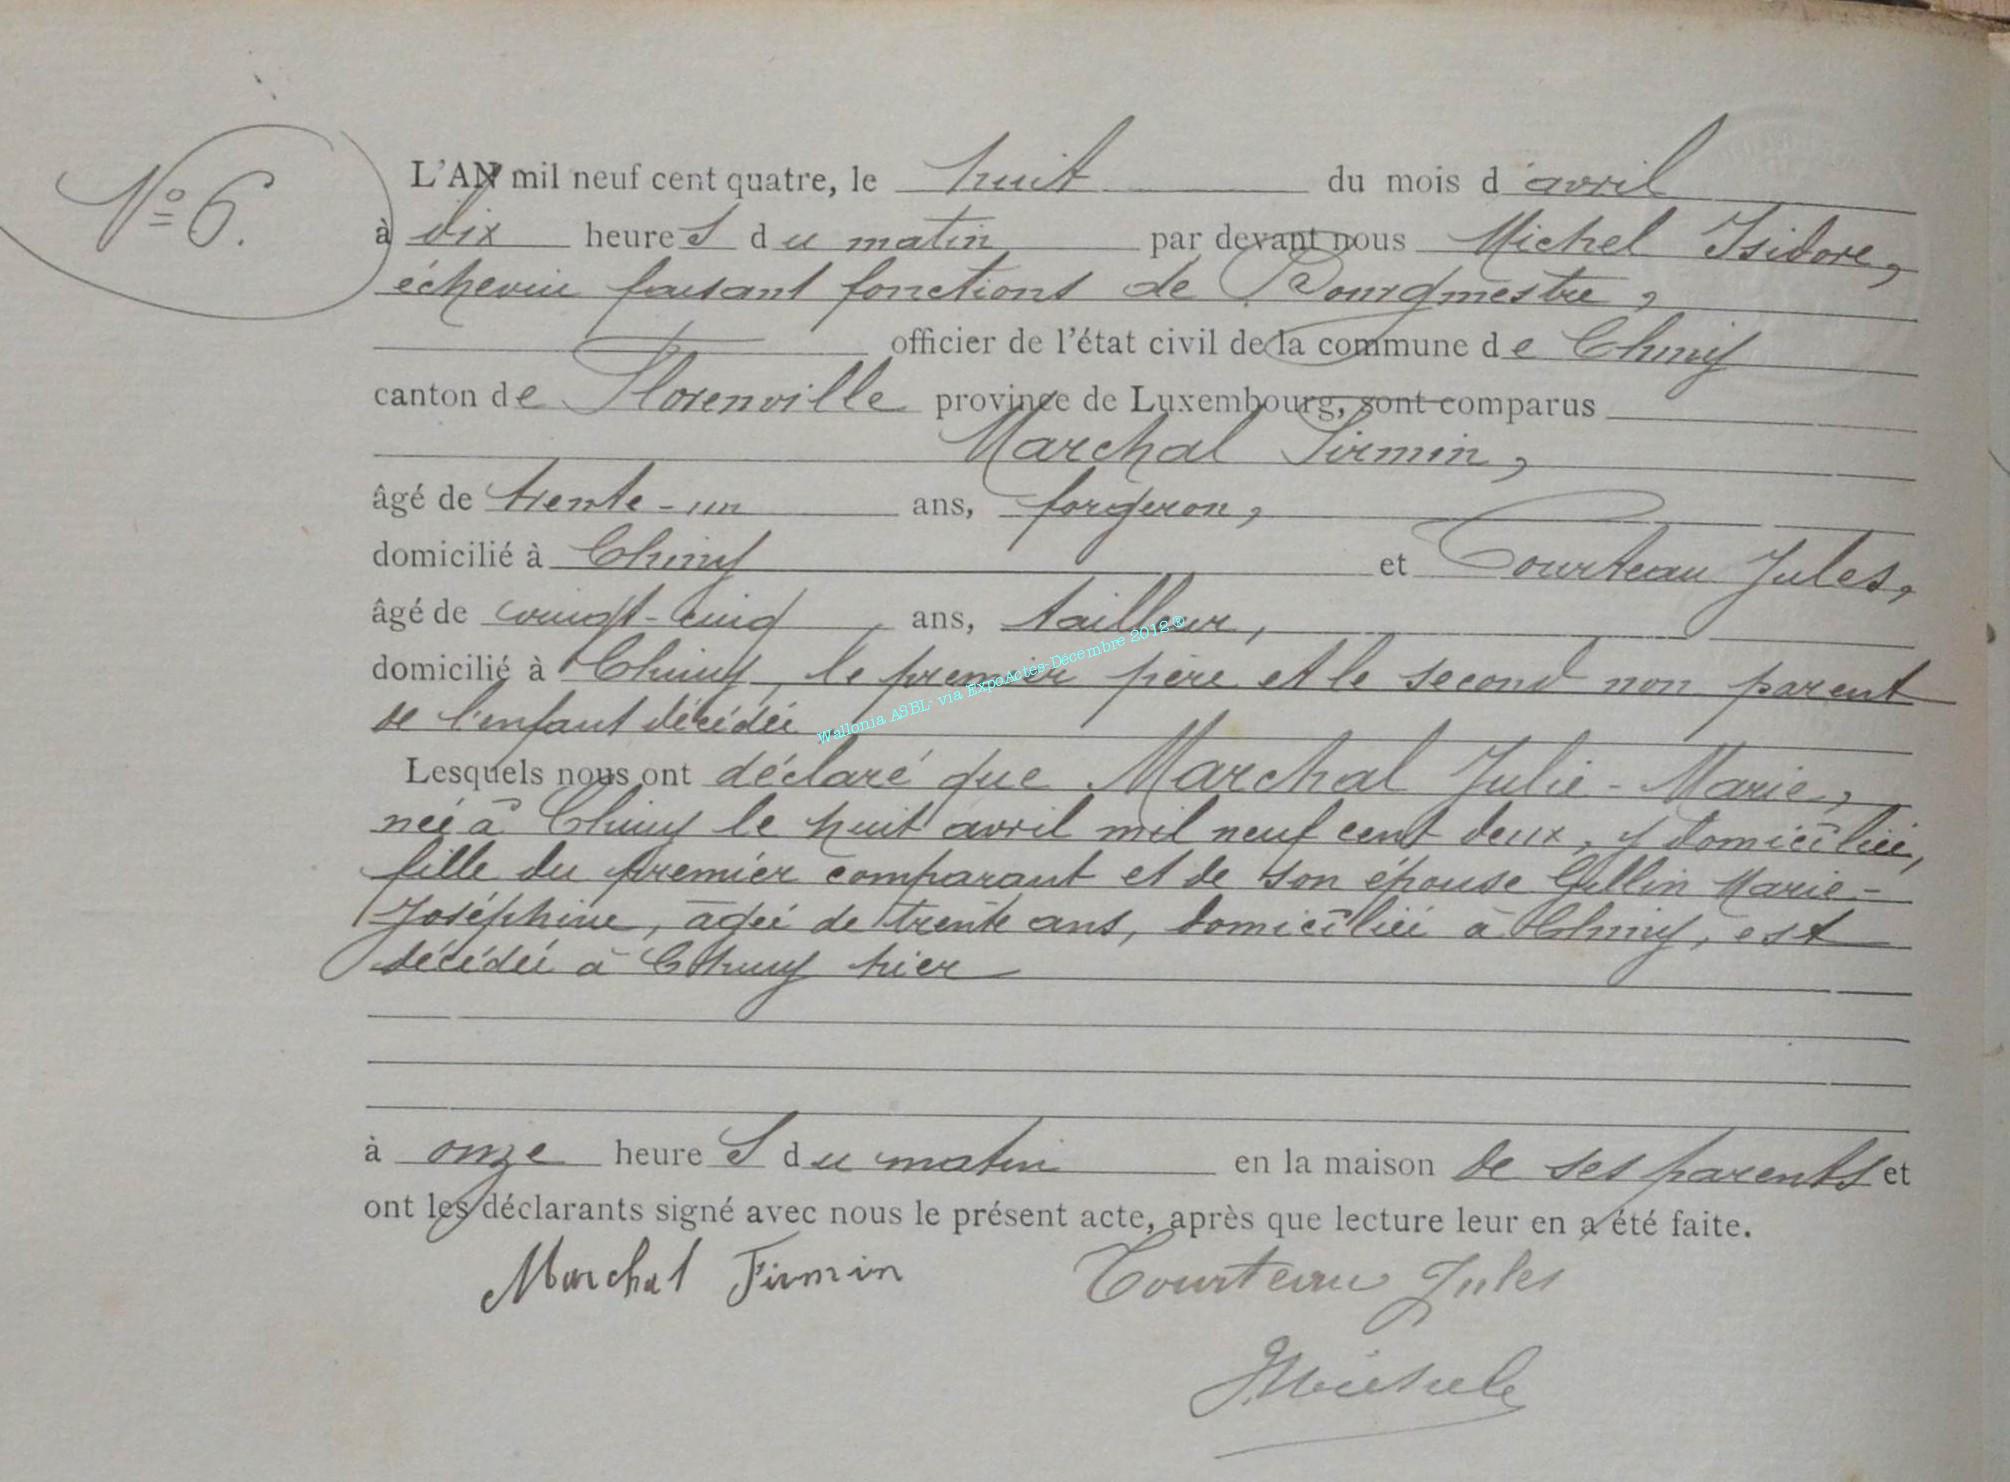 N° 6.
L'AN mil neuf cent quatre, le huit du mois d'avril
à dix heures du matin par devant nous Michel Isidore,
échevin faisant fonctions de Bourgmestre,
officier de l'état civil de la commune de Chiny
canton de Florenville province de Luxembourg, sont comparus
Marchal Firmin,
âgé de trente-un ans, forgeron,
domicilié à Chiny et Courteau Jules,
âgé de vingt-cinq ans, tailleur,
domicilié à Chiny, le premier père et le second non parent
de l'enfant décédée
Lesquels nous ont déclaré que Marchal Julie-Marie,
née à Chiny le huit avril mil neuf cent deux, y domiciliée,
fille du premier comparant et de son épouse Gillin Marie-
Joséphine, âgée de trente ans, domiciliée à Chiny, est
décédée à Chiny hier
à onze heures du matin en la maison de ses parents et
ont les déclarants signé avec nous le présent acte, après que lecture leur en a été faite.
Marchal Firmin Courteau Jules
Wallonia ASBL- via ExpoActes-Décembre 2012 ®